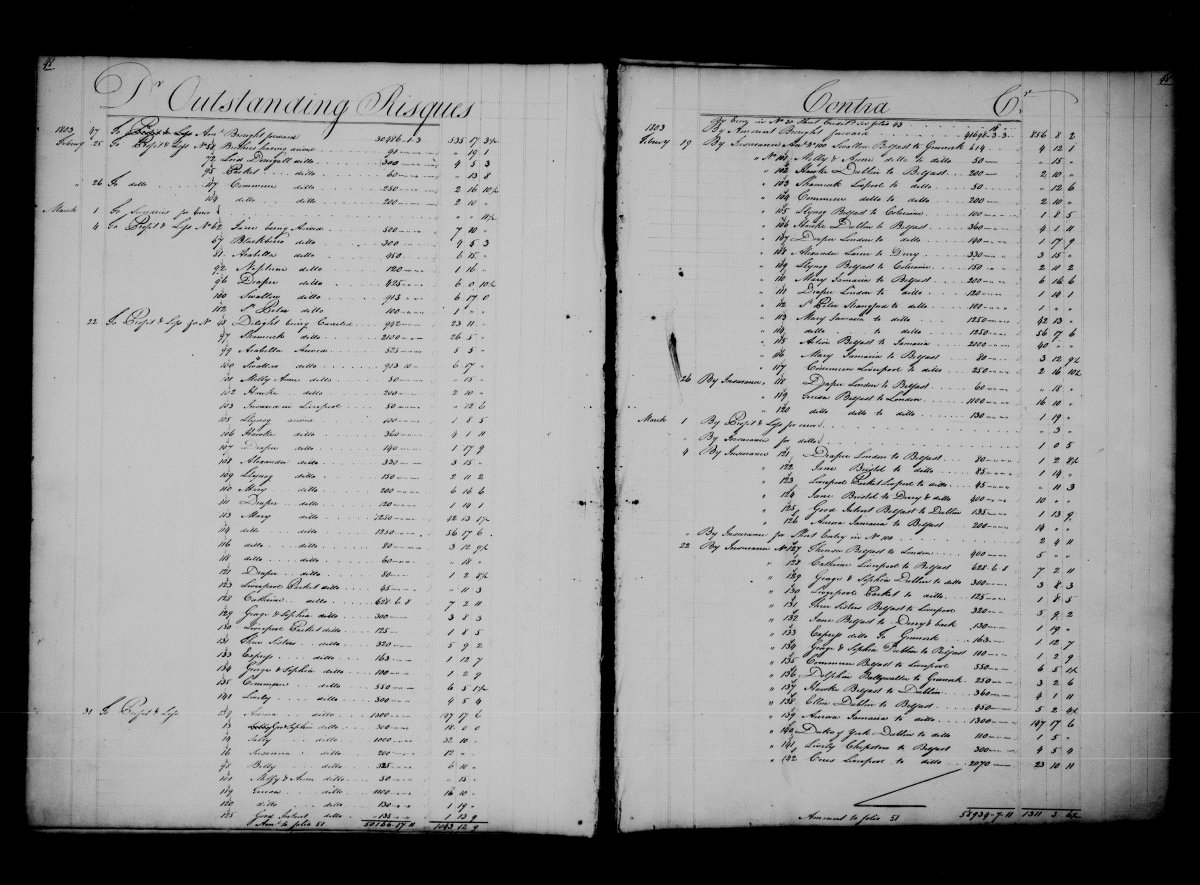 48
Dr Outstanding Risques
1803 47 To Profit & Loss Amt Brought forward 30486.1.3 535 17 3½
Febuary 25 To Profit & Loss No 51 Britain having arrived 91 " 19 1
72 Lord Donegall ditto 300 4 5 3
95 Packet ditto 60 " 13 8
" 26 To ditto 117 Commerce ditto 250 2 16 10½
104 ditto ditto 200 2 10 "
March 1 To Sundries for Error " " 11½
4 To Profit & Loss No 62 Jane being Arrived 500 7 10 "
67 Blackbird ditto 300 4 5 3
81 Arabella ditto 450 6 15 "
92 Neptune ditto 120 1 16 "
96 Draper ditto 425 6 0 10½
100 Swallow ditto 913 6 17 0
112 St Peter ditto 100 1 " "
22 To Profit & Loss for No 48 Delight being Canceled 942 23 11 "
97 Shamrock ditto 2100 26 5 "
99 Arabella Arrived 525 5 5 "
100 Swallow ditto 913 10 6 17 "
101 Molly & Anne ditto 50 " 15 "
102 Hawke ditto 200 2 10 "
103 Insurance Liverpool 50 " 12 6
105 Llynog arrived 100 1 8 5
106 Hawke ditto 360 4 1 11
107 Draper ditto 140 1 17 9
108 Alexander ditto 330 3 15 "
109 Llynog ditto 150 2 11 2
110 Mary ditto 200 6 16 6
111 Draper ditto 120 1 14 1
113 Mary ditto 1250 42 13 1½
114 ditto ditto 1250 56 17 6
116 ditto ditto 80 3 12 9½
118 ditto ditto 60 " 18 "
121 Draper ditto 80 1 2 8½
123 Liverpool Packet ditto 45 " 11 3
128 Catherine ditto 628.6.8 7 2 11
129 George & Sophia ditto 300 3 8 3
130 Liverpool Packet ditto 125 1 8 5
131 Three Sisters ditto 320 5 9 2
133 Express ditto 163 1 12 7
134 George & Sophia ditto 100 1 2 9
135 Commerce ditto 550 6 5 1½
141 Lively ditto 300 4 5 4
31 To Profit & Loss 139 Aurora ditto 1300 147 17 6
ditto 300 18 0 0
ditto 1000 32 10 "
Susanna ditto 200 12 " "
98 Betty ditto 325 6 10 "
101 Molly & Ann ditto 50 " 15 "
119 Teresa ditto 1100 16 10 "
120 ditto ditto 130 1 19 "
125 Good Intent ditto 135 1 13 9
Amt to folio 51 50156.17.11 1043 12 9
48
Contra Cr
1803 By Amount Brought forward 41698.3.3 856 8 2
Febuary 19 By Insurance No 100 Swallow Belfast to Greenock 614 4 12 1
" No 101 Molly & Anne ditto to ditto 50 " 15 "
" 102 Hawke Dublin to Belfast 200 2 10 "
" 103 Shamrock Liverpool to ditto 50 " 12 6
" 104 Commerce ditto to ditto 200 2 10 "
" 105 Llynog Belfast to Coleraine 100 1 8 5
" 106 Hawke Dublin to Belfast 360 4 1 11
" 107 Draper London to ditto 140 1 17 9
" 108 Alexander Larne to Derry 330 3 15 "
" 109 Llynog Belfast to Coleraine 150 2 11 2
" 110 Mary Jamaica to Belfast 200 6 16 6
" 111 Draper London to ditto 120 1 14 1
" 112 St Peter Strangford to ditto 100 1 " "
" 113 Mary Jamaica to ditto 1250 42 13 "
" 114 ditto ditto to ditto 1250 56 17 6
" 115 Active Belfast to Jamaica 2000 40 " "
" 116 Mary Jamaica to Belfast 80 3 12 9½
" 117 Commerce Liverpool to ditto 250 2 16 10½
26 By Insurance 118 Draper London to Belfast 60 " 18 "
" 119 Teresa Belfast to London 1100 16 10 "
" 120 ditto ditto to ditto 130 1 19 "
March 1 By Profit & Loss for error " 3 "
" By Insurance for ditto 1 0 5
4 By Insurance 121 Draper London to Belfast 80 1 2 8½
" 122 Jane Bristol to ditto 85 1 14 "
" 123 Liverpool Packet Liverpool to ditto 45 " 11 3
" 124 Jane Bristol to Derry & ditto 400 10 " "
" 125 Good Intent Belfast to Dublin 135 1 13 9
" 126 Aurora Jamaica to Belfast 200 14 " "
" By Insurance for Short Entry in No 100 2 4 11
22 By Insurance No 127 Belfast to London 400 5 " "
" 128 Catherine Liverpool to Belfast 628.6.8 7 2 11
" 129 George & Sophia Dublin to ditto 300 3 8 3
" 130 Liverpool Packet to ditto 125 1 8 5
" 131 Three Sisters Belfast to Liverpool 320 5 9 2
" 132 Jane Belfast to Derry & back 130 1 19 "
" 133 Express ditto To Greenock 163 1 12 7
" 134 George & Sophia Dublin to Belfast 100 1 2 9
" 135 Commerce Belfast to Liverpool 550 6 5 1½
" 136 Dolphin Ballywalter to Greenock 250 3 2 6
" 137 Hawke Belfast to Dublin 360 4 1 11
" 138 Ellen Dublin to Belfast 450 5 2 4½
" 139 Aurora Jamaica to ditto 1300 147 17 6
" 140 Duke of York Dublin to ditto 110 1 5 "
" 141 Lively Chepstow to Belfast 300 4 5 4
" 142 Ceres Liverpool to ditto 2070 23 10 11
Amount to folio 51 58939.7.11 1311 3 6½